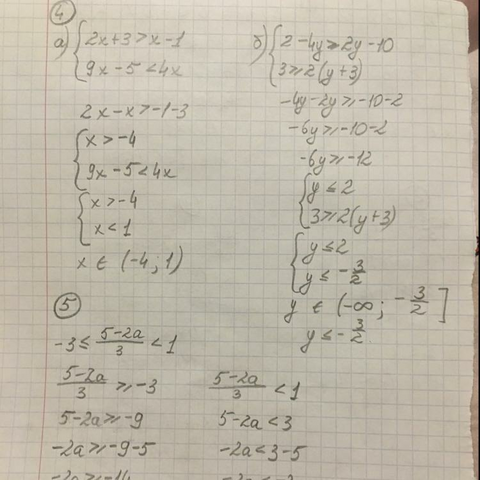 ④
а) { 2x+3 > x-1
9x-5 < 4x
2x-x > -1-3
{ x > -4
9x-5 < 4x
{ x > -4
x < 1
x ∈ (-4; 1)
б) { 2-4y ≥ 2y-10
3 ≥ 2(y+3)
-4y-2y ≥ -10-2
-6y ≥ -10-2
-6y ≥ -12
{ y ≤ 2
3 ≥ 2(y+3)
{ y ≤ 2
y ≤ -3/2
y ∈ (-∞; -3/2]
y ≤ -3/2
⑤
-3 ≤ (5-2a)/3 < 1
(5-2a)/3 ≥ -3
5-2a ≥ -9
-2a ≥ -9-5
-2a ≥ -14
(5-2a)/3 < 1
5-2a < 3
-2a < 3-5